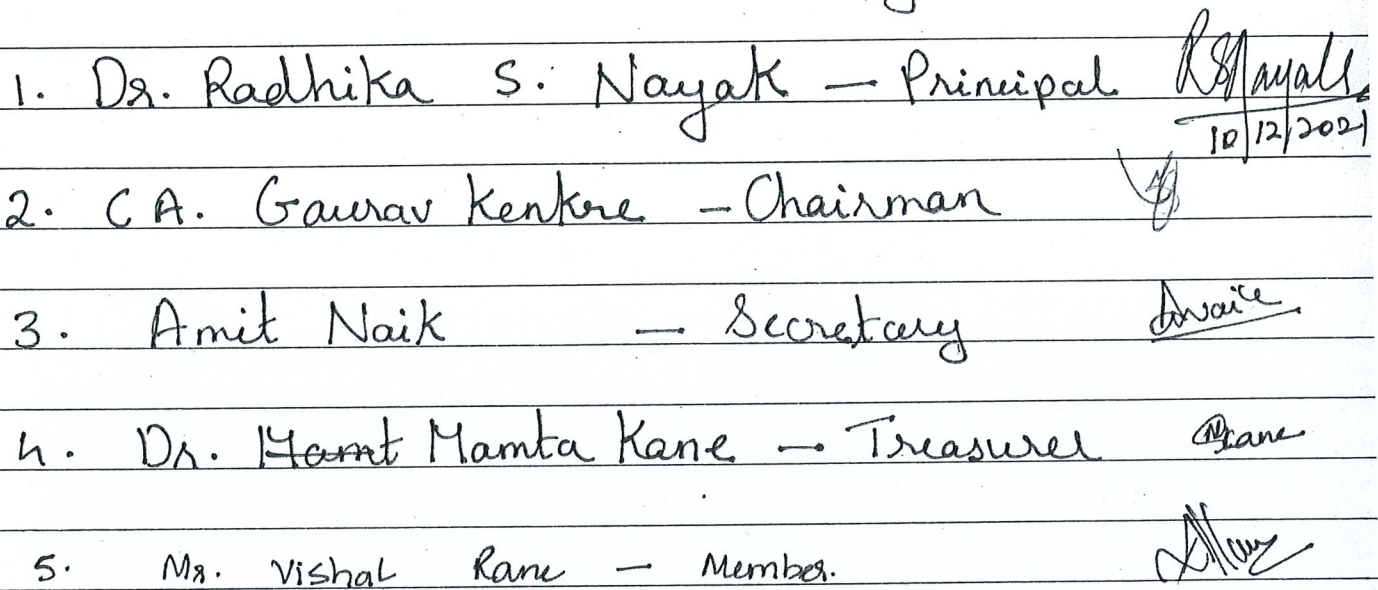 1. Dr. Radhika S. Nayak — Principal RSNayak
10/12/2021
2. CA. Gaurav Kenkre - Chairman
3. Amit Naik — Secretary ANaik
4. Dr. Mamta Kane — Treasurer
5. Mr. Vishal Rane — Member.